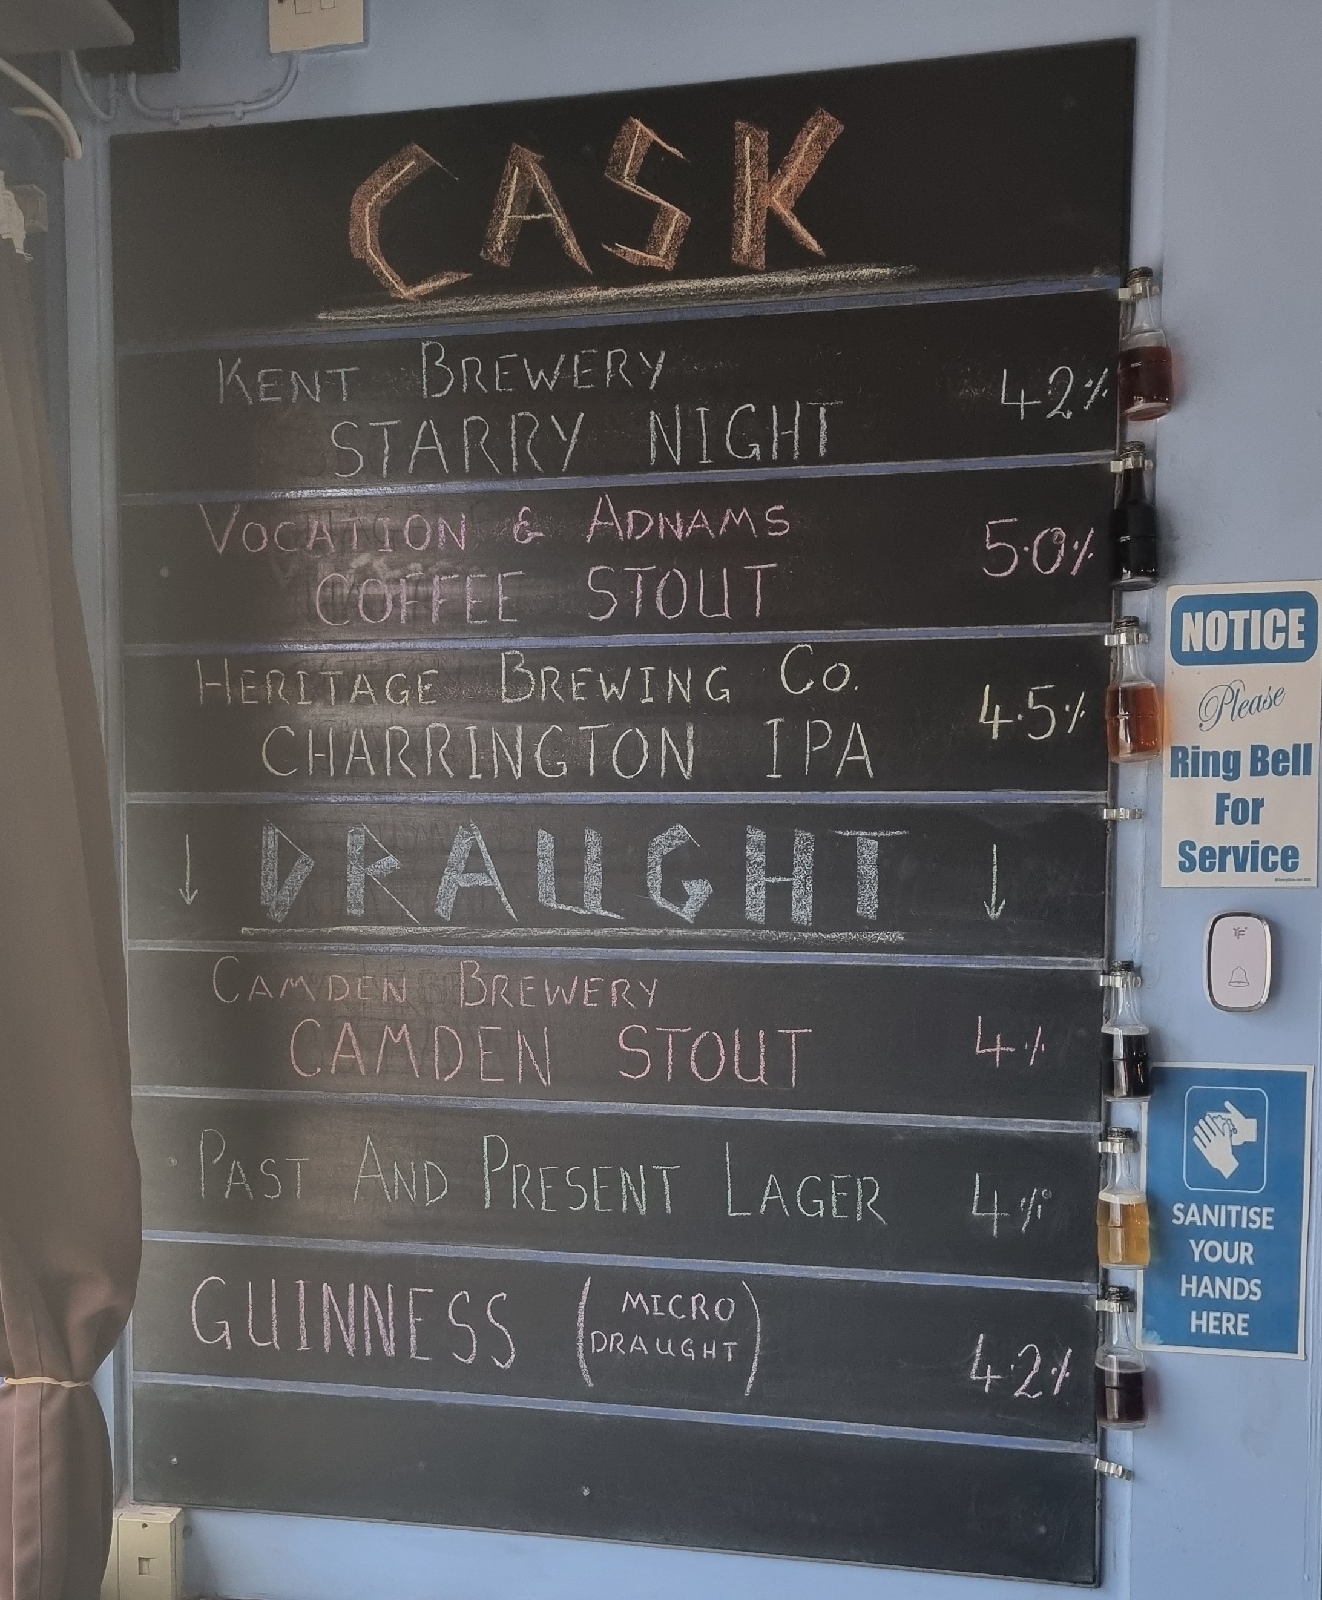 CASK
KENT BREWERY
STARRY NIGHT 4.2%
VOCATION & ADNAMS
COFFEE STOUT 5.0%
HERITAGE BREWING CO.
CHARRINGTON IPA 4.5%
↓ DRAUGHT ↓
CAMDEN BREWERY
CAMDEN STOUT 4%
PAST AND PRESENT LAGER 4%
GUINNESS (MICRO
DRAUGHT) 4.2%
NOTICE
Please
Ring Bell
For
Service
SANITISE
YOUR
HANDS
HERE